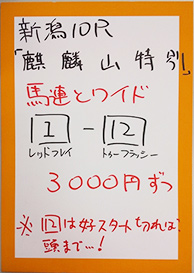 新潟10R
「麒麟山特別」
馬連とワイド
1 - 12
レッドフレイ トゥーフラッシー
3000円ずつ
※12は好スタート切れば、
頭まで…!